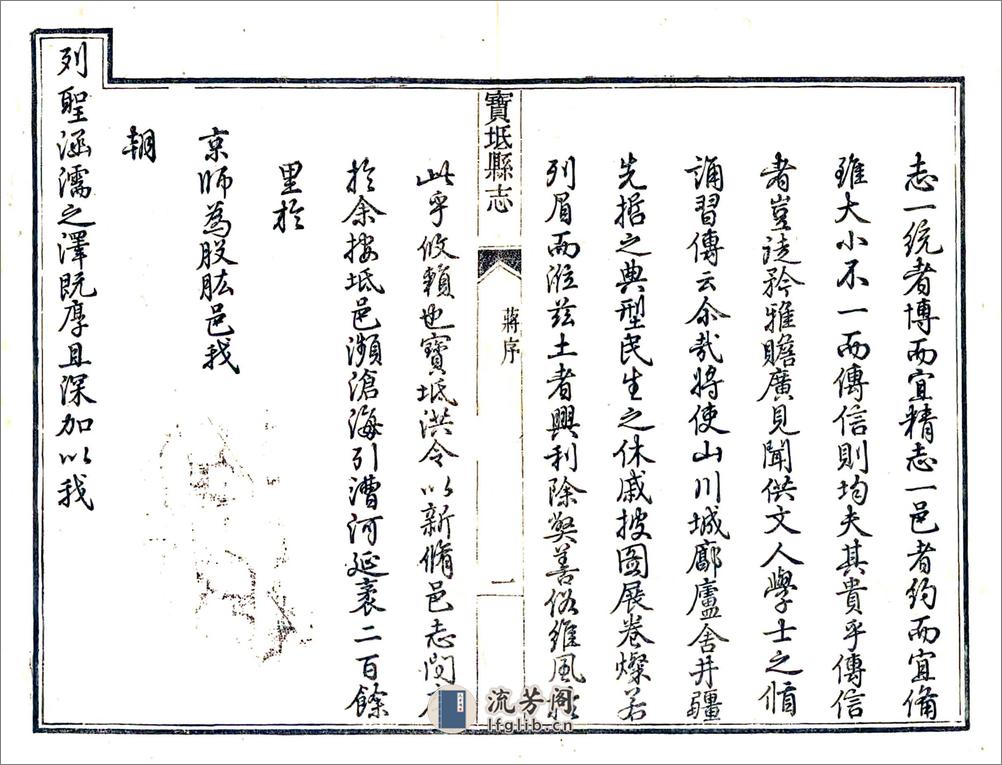 志一統者博而宜精志一邑者約而宜備
雖大小不一而傳信則均夫其貴乎傳信
者豈徒矜雅贍廣見聞供文人學士之
誦習傳云尒哉將使山川城郭廬舍井疆
先哲之典型民生之休戚披圖展卷燦若
列眉而涖茲土者興利除獘善俗維風
寶坻縣志
蔣序
二
此乎攸賴也寶坻洪令以新脩邑志問
於余按坻邑瀕滄海引漕河延袤二百餘
里於
京師為股肱邑我
朝
列聖涵濡之澤既厚且深加以我
流芳阁
lfglib.cn